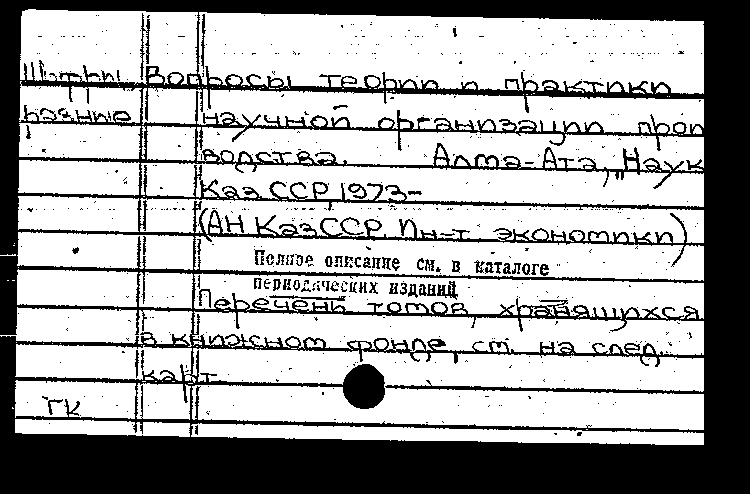 Вопросы теории и практики
научной организации прои
водства. Алма-Ата, „Наук
Каз ССР, 1973-
(АН КазССР. Ин-т экономики)
Полное описание см. в каталоге
периодических изданий
Перечень томов, хранящихся
в книжном фонде, см. на след.
карт
ГК